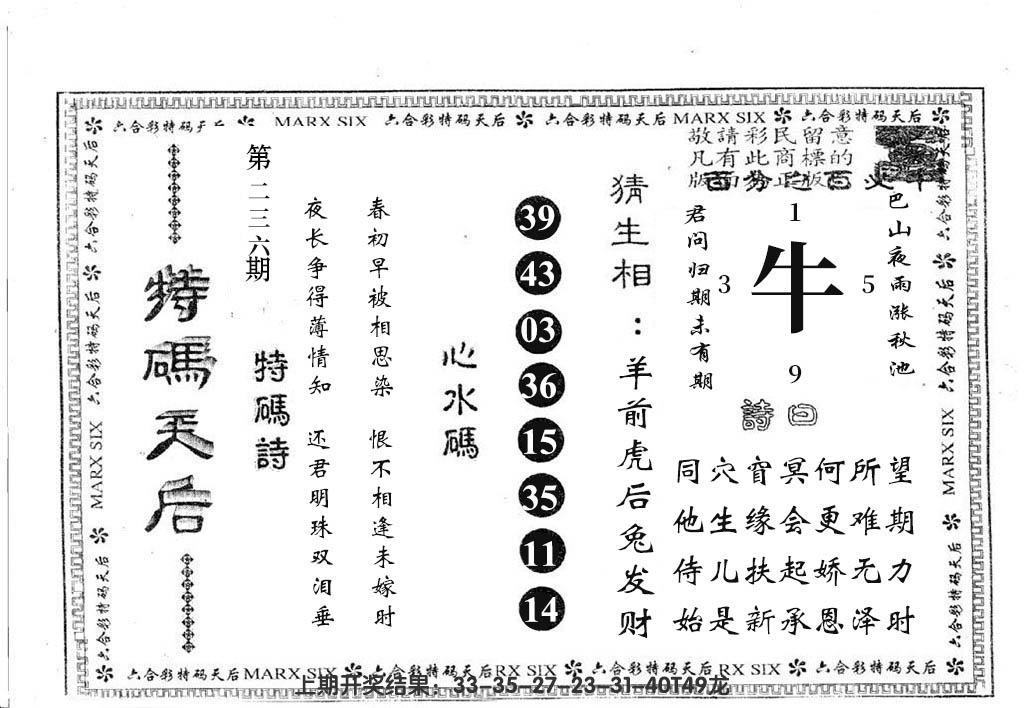 六合彩特码天后 MARX SIX 六合彩特码天后 六合彩特码天后 MARX SIX 六合彩特码天后
敬請彩民留意
凡有此商標的
版面为正版
巴山夜雨涨秋池
君问归期未有期
1
3
牛
5
9
詩曰
望期力时
所难无泽
何更娇恩
冥会起承
窅缘扶新
穴生儿是
同他侍始
猜生相：羊前虎后兔发财
39
43
03
36
15
35
11
14
心水碼
春初早被相思染 恨不相逢未嫁时
夜长争得薄情知 还君明珠双泪垂
特碼詩
第二三六期
特碼天后
六合彩特码天后
MARX SIX
六合彩特码天后
六合彩特码天后
六合彩特码天后
MARX SIX
六合彩特码天后
六合彩特码天后 MARX SIX 六合彩特码天后 RX SIX 六合彩特码天后 RX SIX 六合彩特码天后
上期开奖结果：33-35-27-23-31-40T49龙